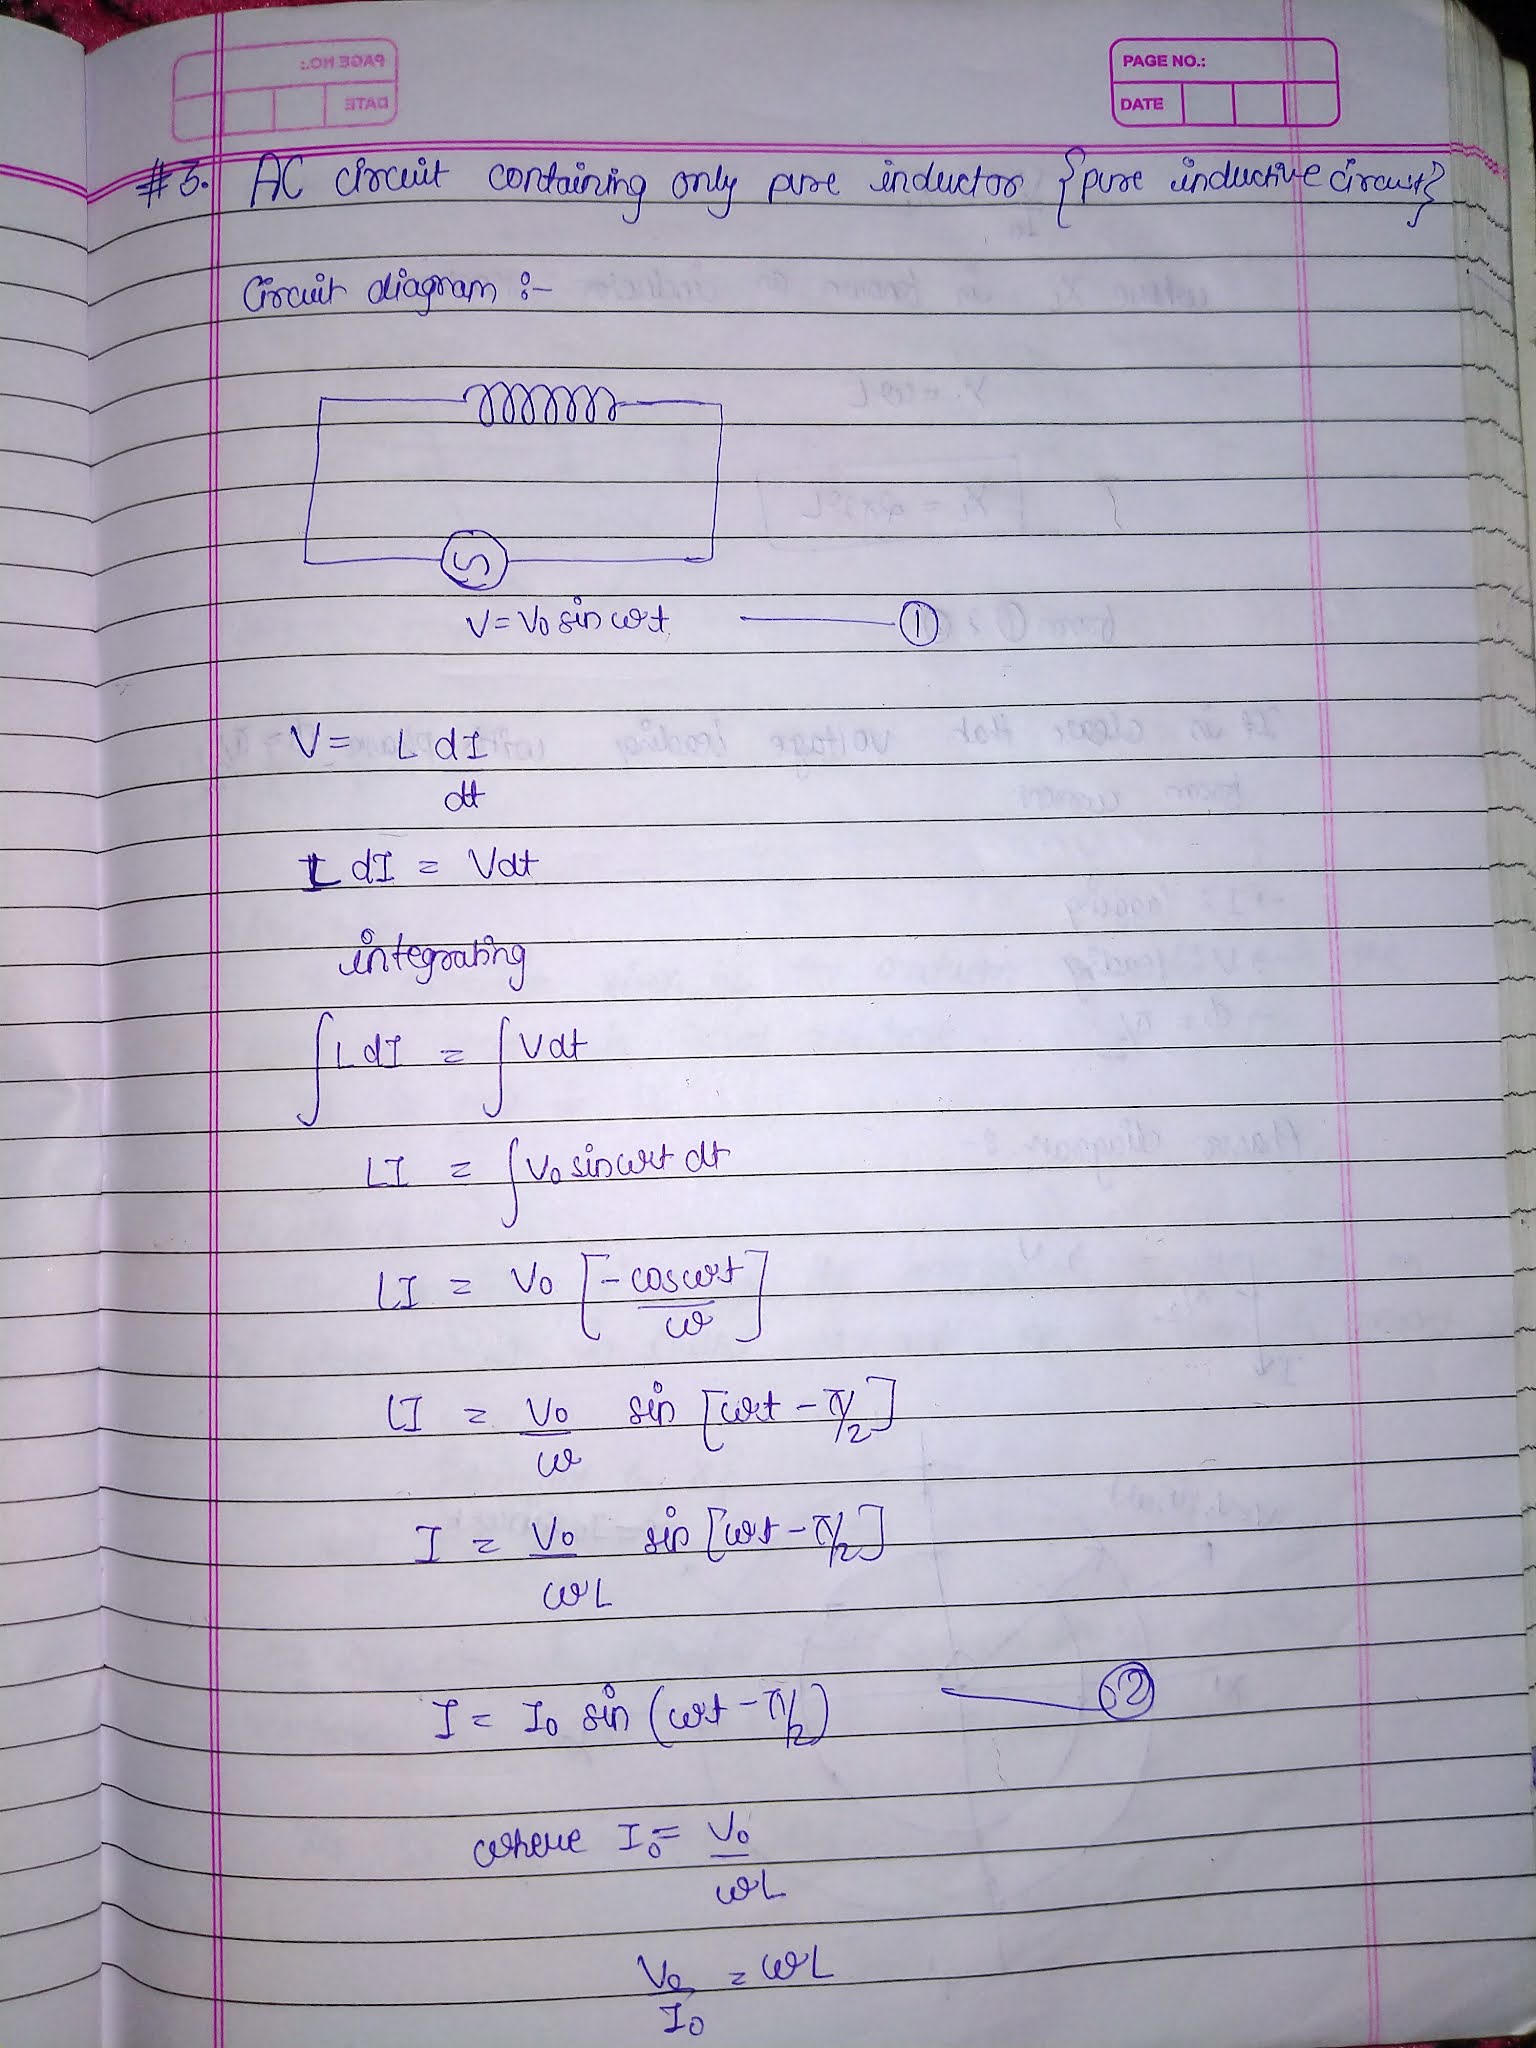 PAGE NO.:
DATE
#3. AC circuit containing only pure inductor {pure inductive circuit}
Circuit diagram :-
V = V₀ sin ωt ——— ①
V = L dI
dt
L dI = Vdt
integrating
∫ L dI = ∫ Vdt
LI = ∫ V₀ sin ωt dt
LI = V₀ [- cos ωt
ω ]
LI = V₀ sin [ωt - π/2]
ω
I = V₀ sin [ωt - π/2]
ωL
I = I₀ sin (ωt - π/2) ——— ②
where I₀ = V₀
ωL
V₀ = ωL
I₀